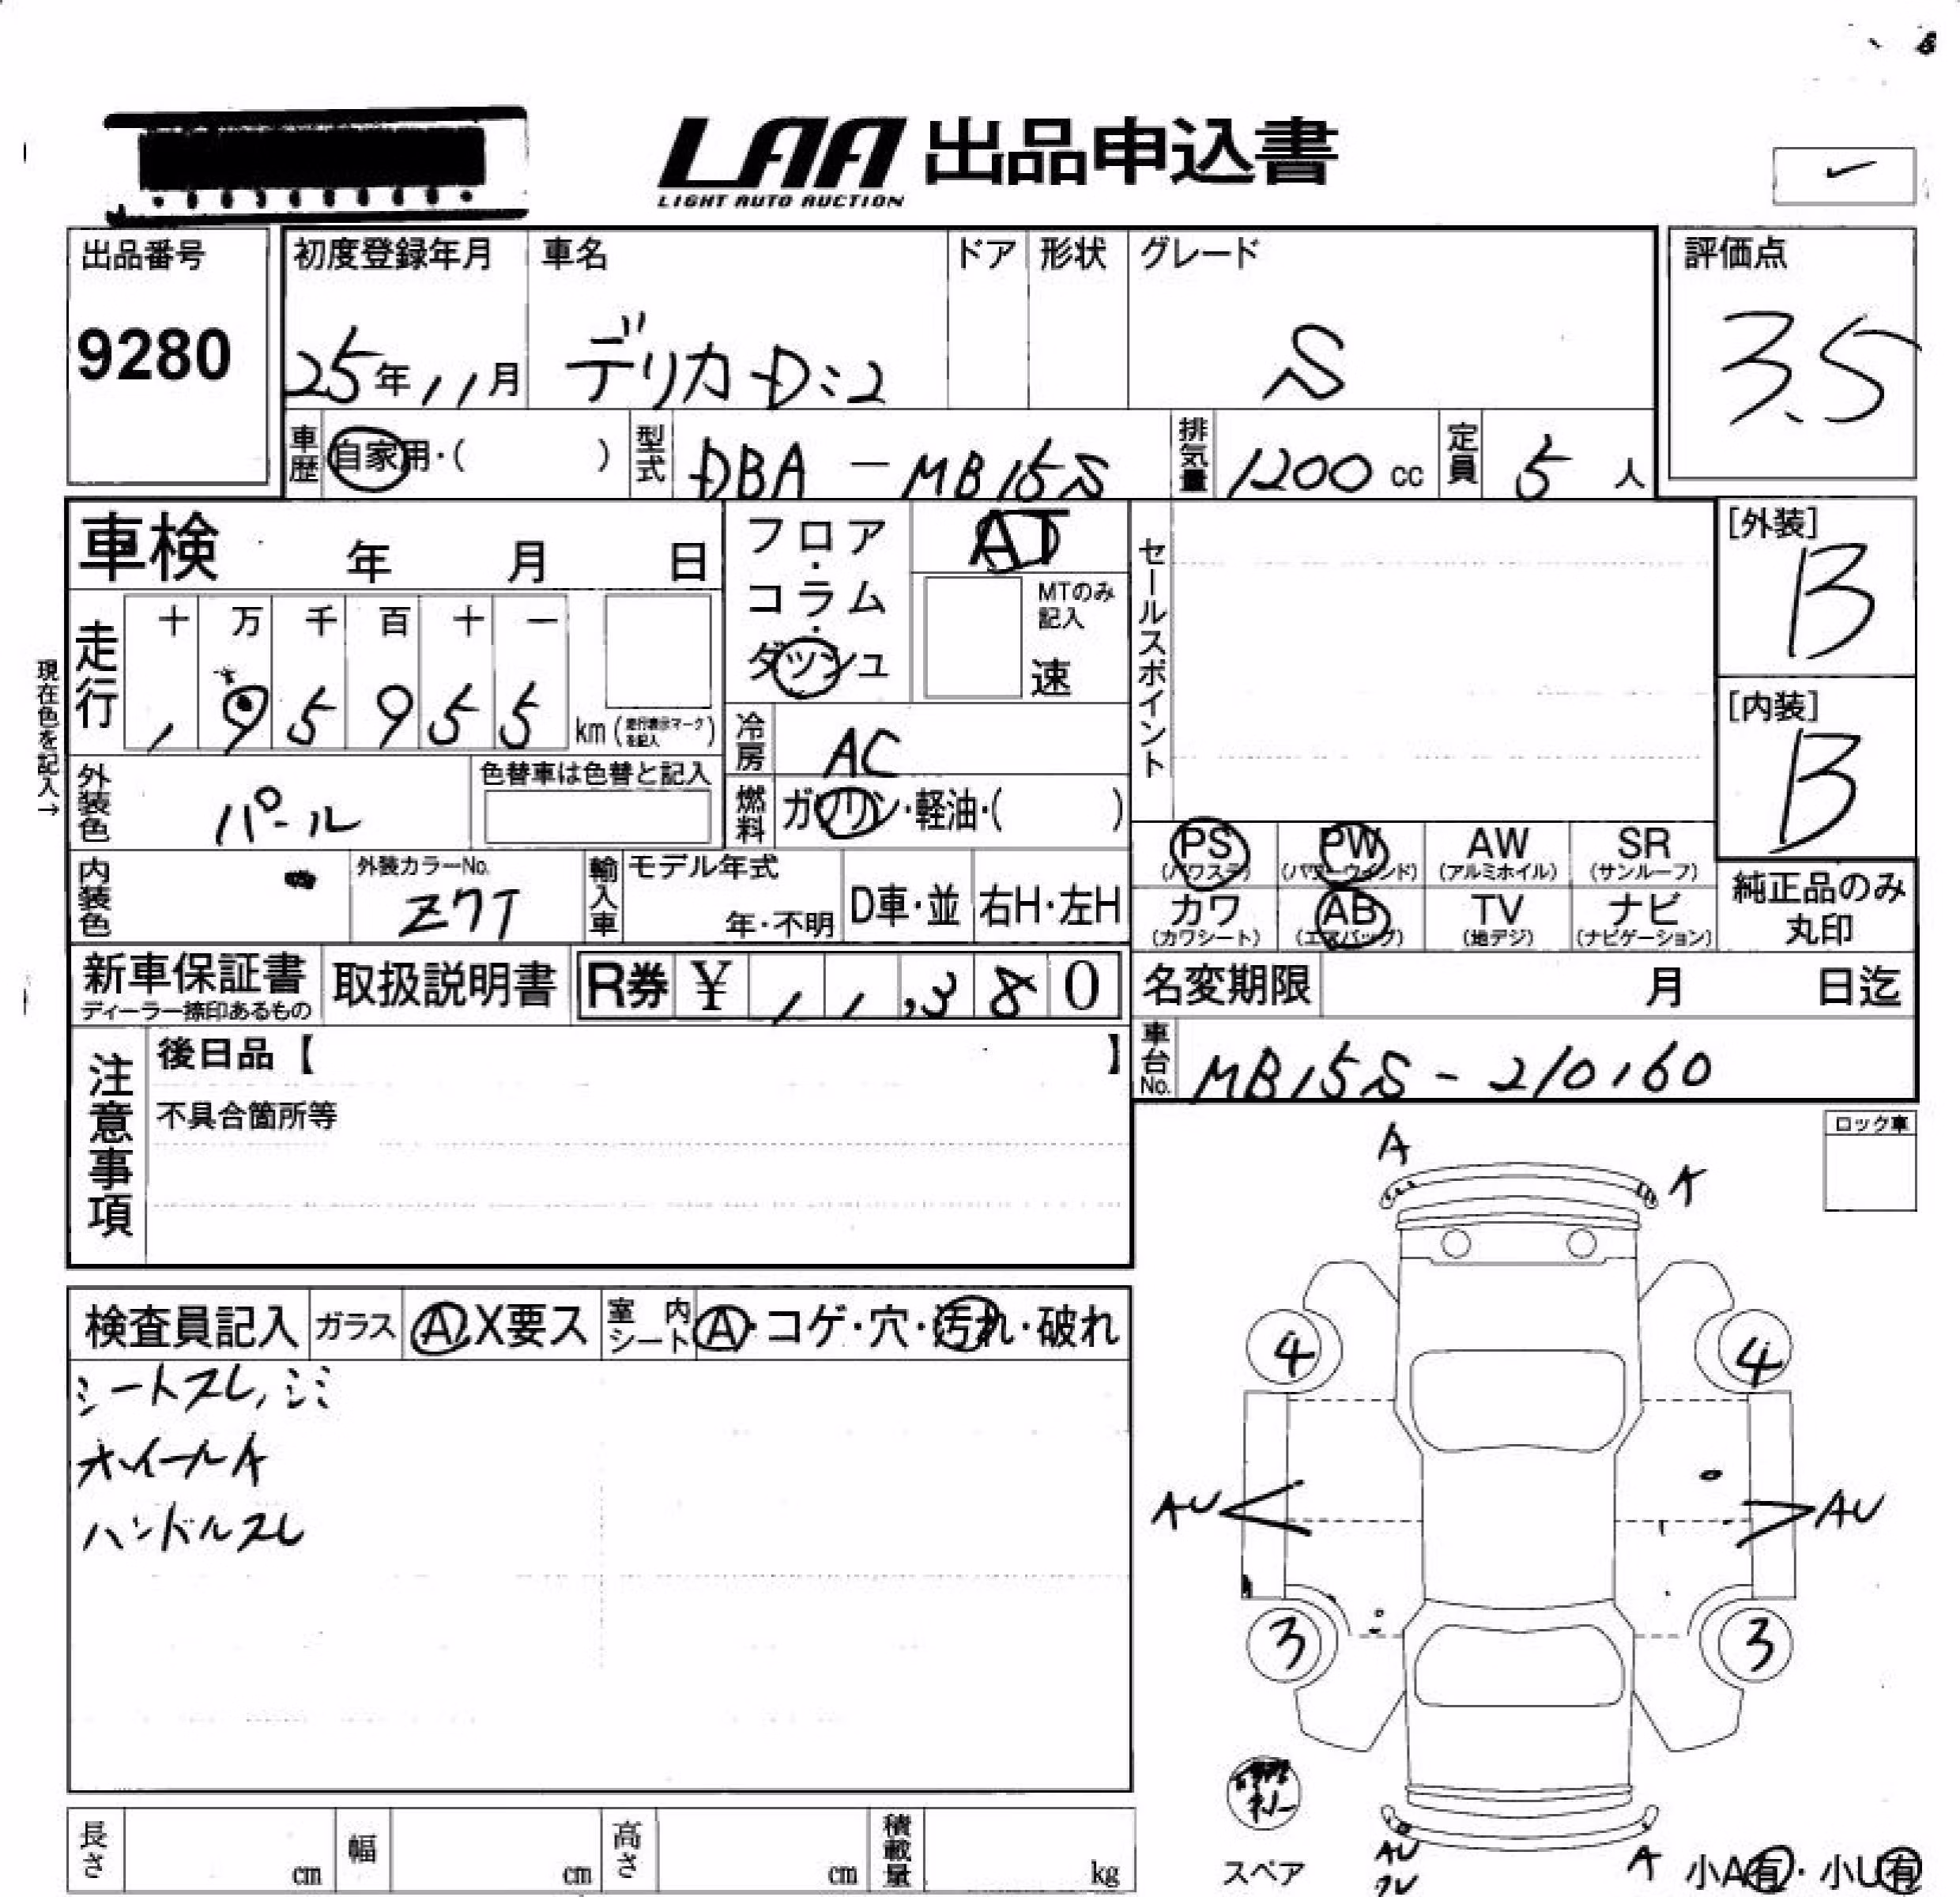 LAA 出品申込書
LIGHT AUTO AUCTION
出品番号
9280
初度登録年月
25年11月
車名
デリカD:2
ドア
形状
グレード
S
評価点
3.5
車歴 自家用・( )
型式 DBA-MB15S
排気量 1200 cc
定員 5 人
車検 年 月 日
フロア・コラム・ダッシュ
AT
MTのみ記入
速
セールスポイント
[外装]
B
[内装]
B
現在色を記入→
走行
十 万 千 百 十 一
, 9 5 9 5 5 km (走行表示マークを記入)
冷房 AC
外装色 パール
色替車は色替と記入
燃料 ガソリン・軽油・( )
PS (パワステ)
PW (パワーウィンド)
AW (アルミホイル)
SR (サンルーフ)
カワ (カワシート)
AB (エアバッグ)
TV (地デジ)
ナビ (ナビゲーション)
純正品のみ丸印
内装色
外装カラーNo. Z7T
輸入車
モデル年式
年・不明
D車・並
右H・左H
新車保証書
ディーラー捺印あるもの
取扱説明書
R券 ¥ 11,380
名変期限 月 日迄
車台No. MB15S-210160
注意事項
後日品【 】
不具合箇所等
ロック車
検査員記入
ガラス A X要ス
室内シート A・コゲ・穴・汚れ・破れ
シートスレ,シミ
ホイールA
ハンドルスレ
A
A
4
4
AU
AU
3
3
スペア
AU
A
小A有・小U有
長さ cm
幅 cm
高さ cm
積載量 kg